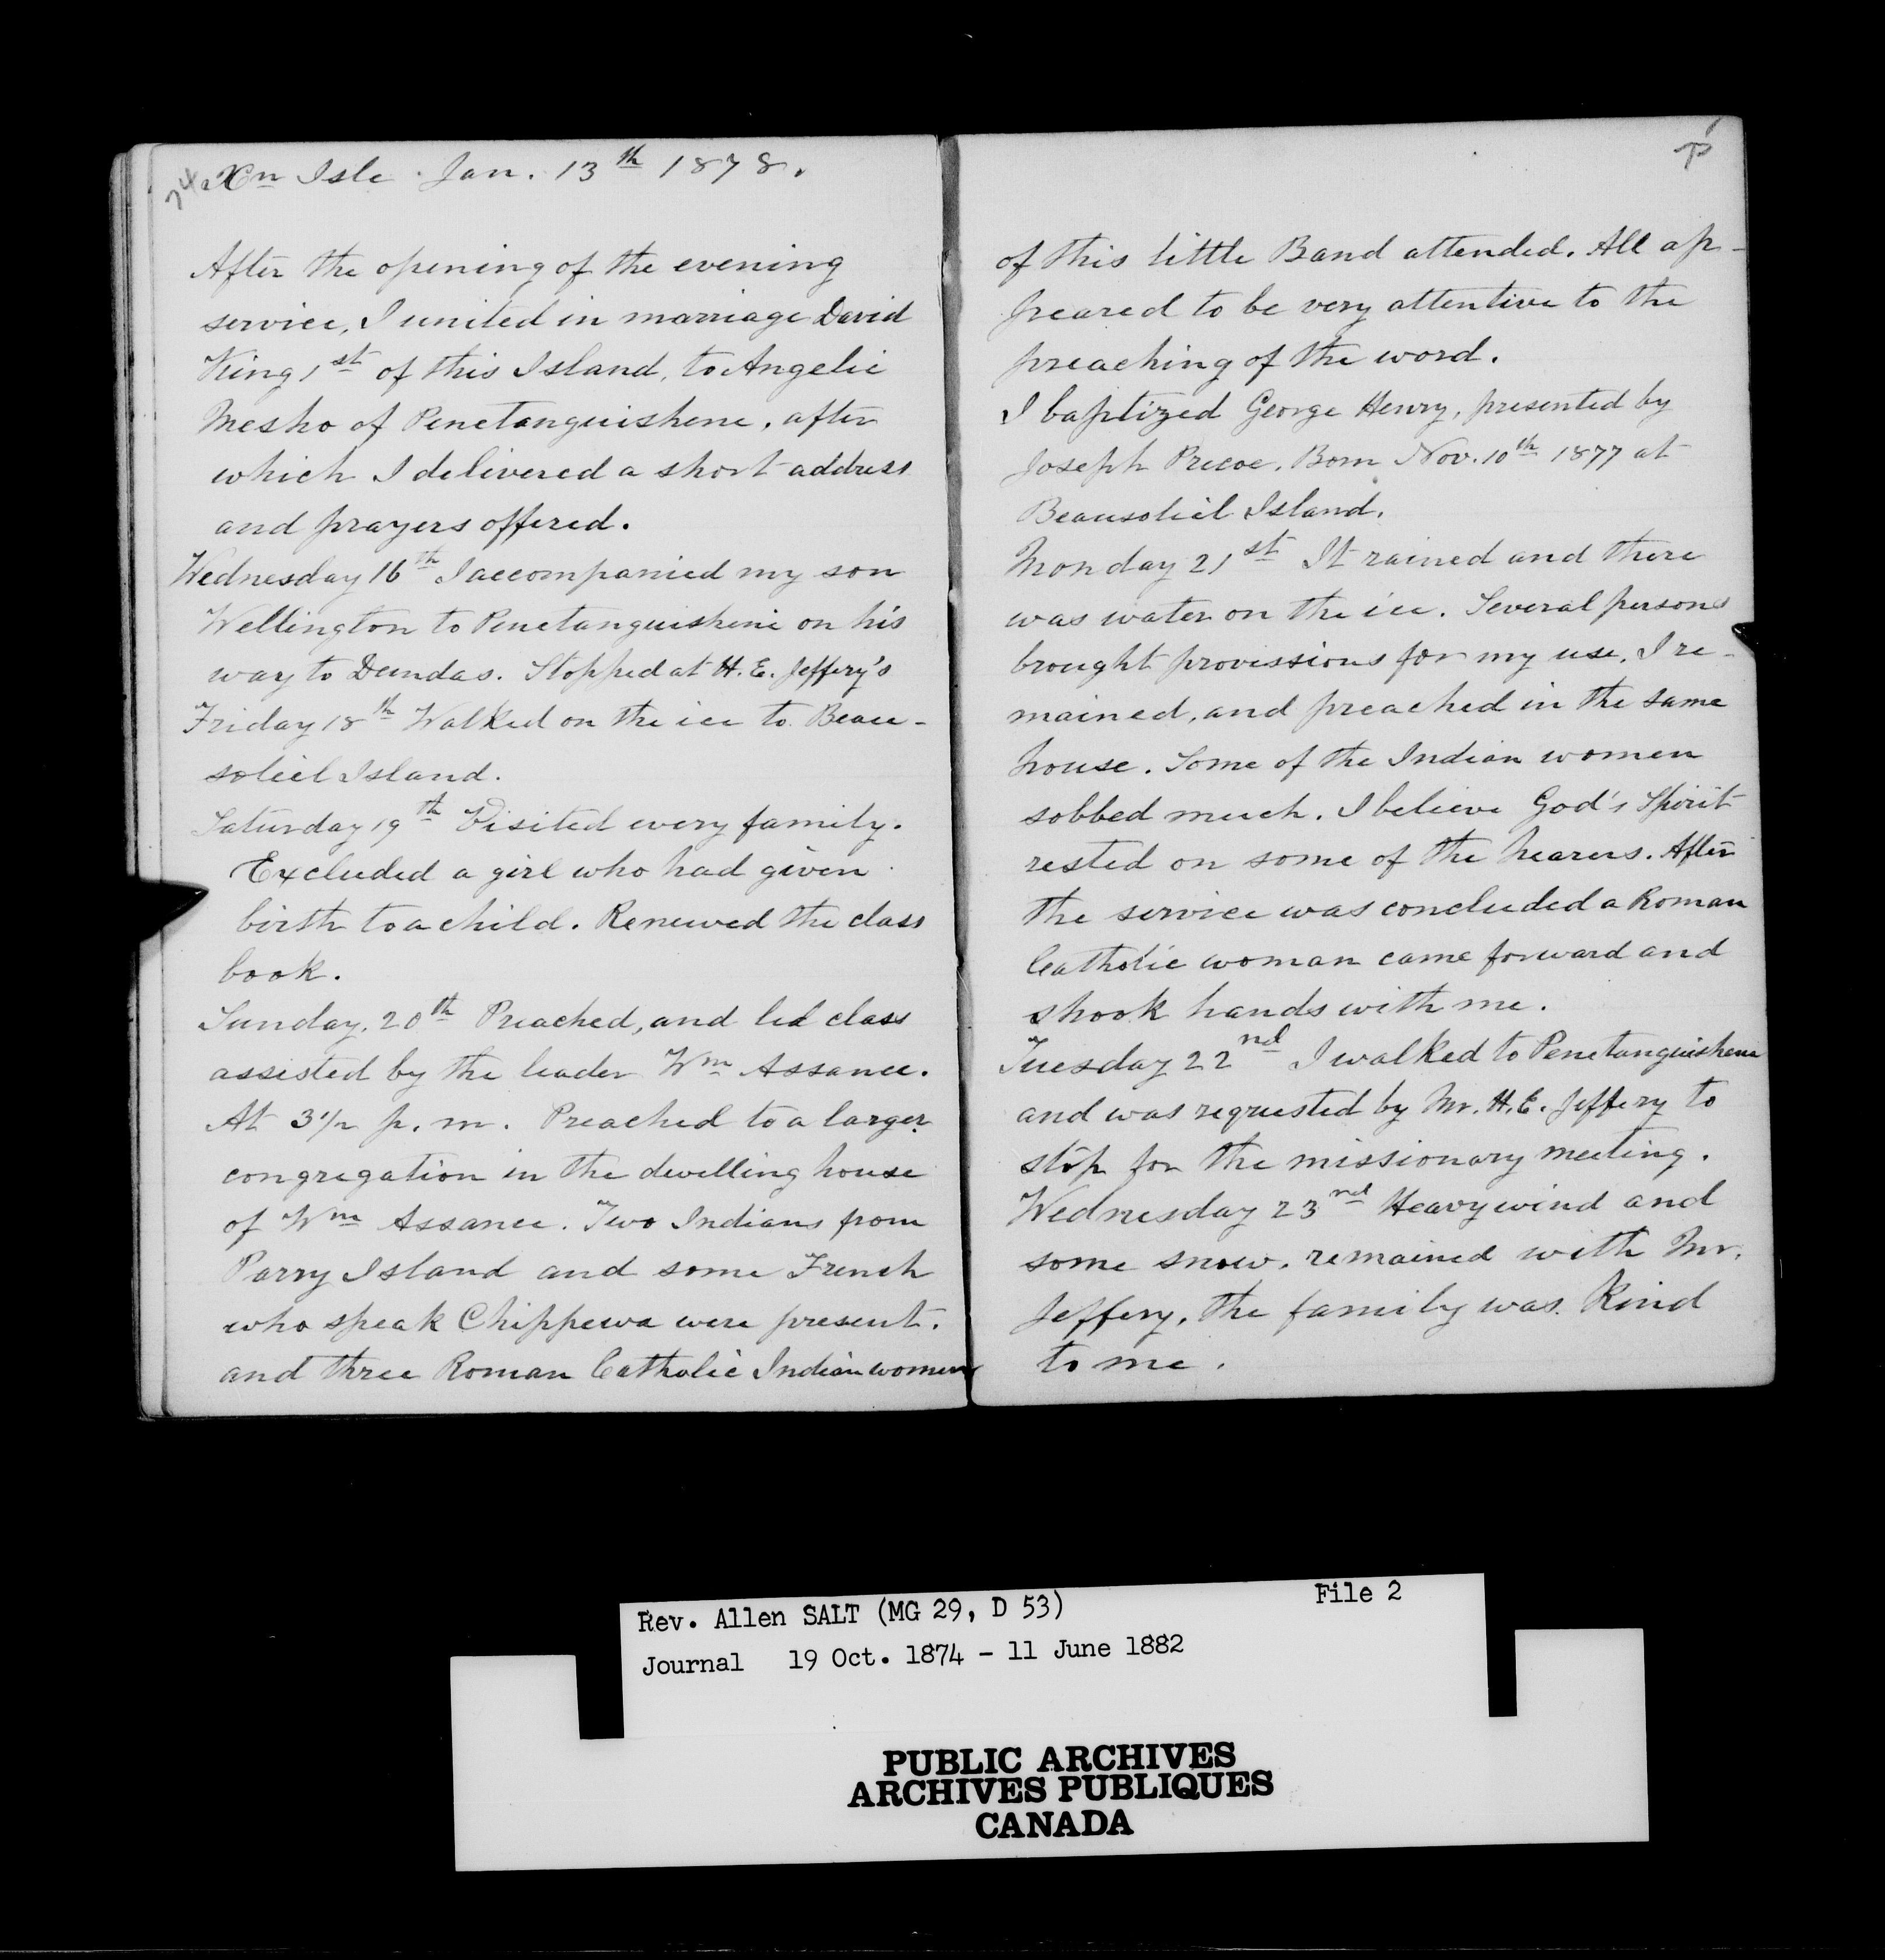 74
Xn Isle. Jan. 13th 1878.
After the opening of the evening
service, I united in marriage David
King 1st of this Island, to Angelic
Mesho of Penetanguishene, after
which I delivered a short address
and prayers offered.
Wednesday 16th I accompanied my son
Wellington to Penetanguishene on his
way to Dundas. Stopped at H. E. Jeffery's
Friday 18th Walked on the ice to Beau-
soliel Island.
Saturday 19th Visited every family.
Excluded a girl who had given
birth to a child. Renewed the class
book.
Sunday, 20th Preached, and led class
assisted by the leader Wm Assance.
At 3 1/2 p. m. Preached to a larger
congregation in the dwelling house
of Wm Assance. Two Indians from
Parry Island and some French
who speak Chippewa were present.
and three Roman Catholic Indian women
of this little Band attended. All ap-
peared to be very attentive to the
preaching of the word.
I baptized George Henry, presented by
Joseph Precoe. Born Nov. 10th 1877 at
Beausoliel Island.
Monday 21st It rained and there
was water on the ice. Several persons
brought provissions for my use. I re-
mained, and preached in the same
house. Some of the Indian women
sobbed much. I believe God's Spirit
rested on some of the hearers. After
the service was concluded a Roman
Catholic woman came forward and
shook hands with me.
Tuesday 22nd I walked to Penetanguishene
and was requested by Mr. H. E. Jeffery to
stop for the missionary meeting.
Wednesday 23rd Heavy wind and
some snow. remained with Mr.
Jeffery, the family was kind
to me.
Rev. Allen SALT (MG 29, D 53) File 2
Journal 19 Oct. 1874 - 11 June 1882
PUBLIC ARCHIVES
ARCHIVES PUBLIQUES
CANADA